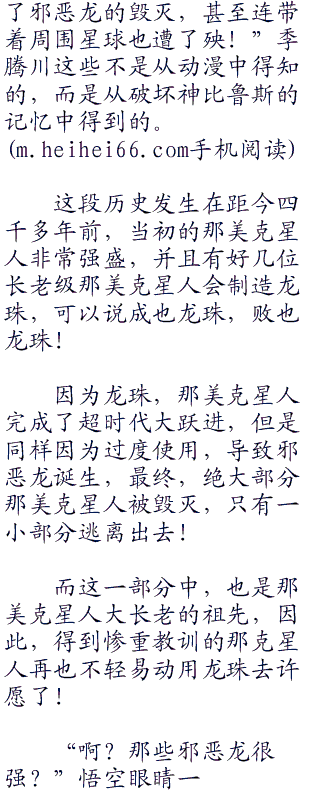 了邪恶龙的毁灭，甚至连带
着周围星球也遭了殃！”季
腾川这些不是从动漫中得知
的，而是从破坏神比鲁斯的
记忆中得到的。
(m.heihei66.com手机阅读)
这段历史发生在距今四
千多年前，当初的那美克星
人非常强盛，并且有好几位
长老级那美克星人会制造龙
珠，可以说成也龙珠，败也
龙珠！
因为龙珠，那美克星人
完成了超时代大跃进，但是
同样因为过度使用，导致邪
恶龙诞生，最终，绝大部分
那美克星人被毁灭，只有一
小部分逃离出去！
而这一部分中，也是那
美克星人大长老的祖先，因
此，得到惨重教训的那美克星
人再也不轻易动用龙珠去许
愿了！
“啊？那些邪恶龙很
强？”悟空眼睛一